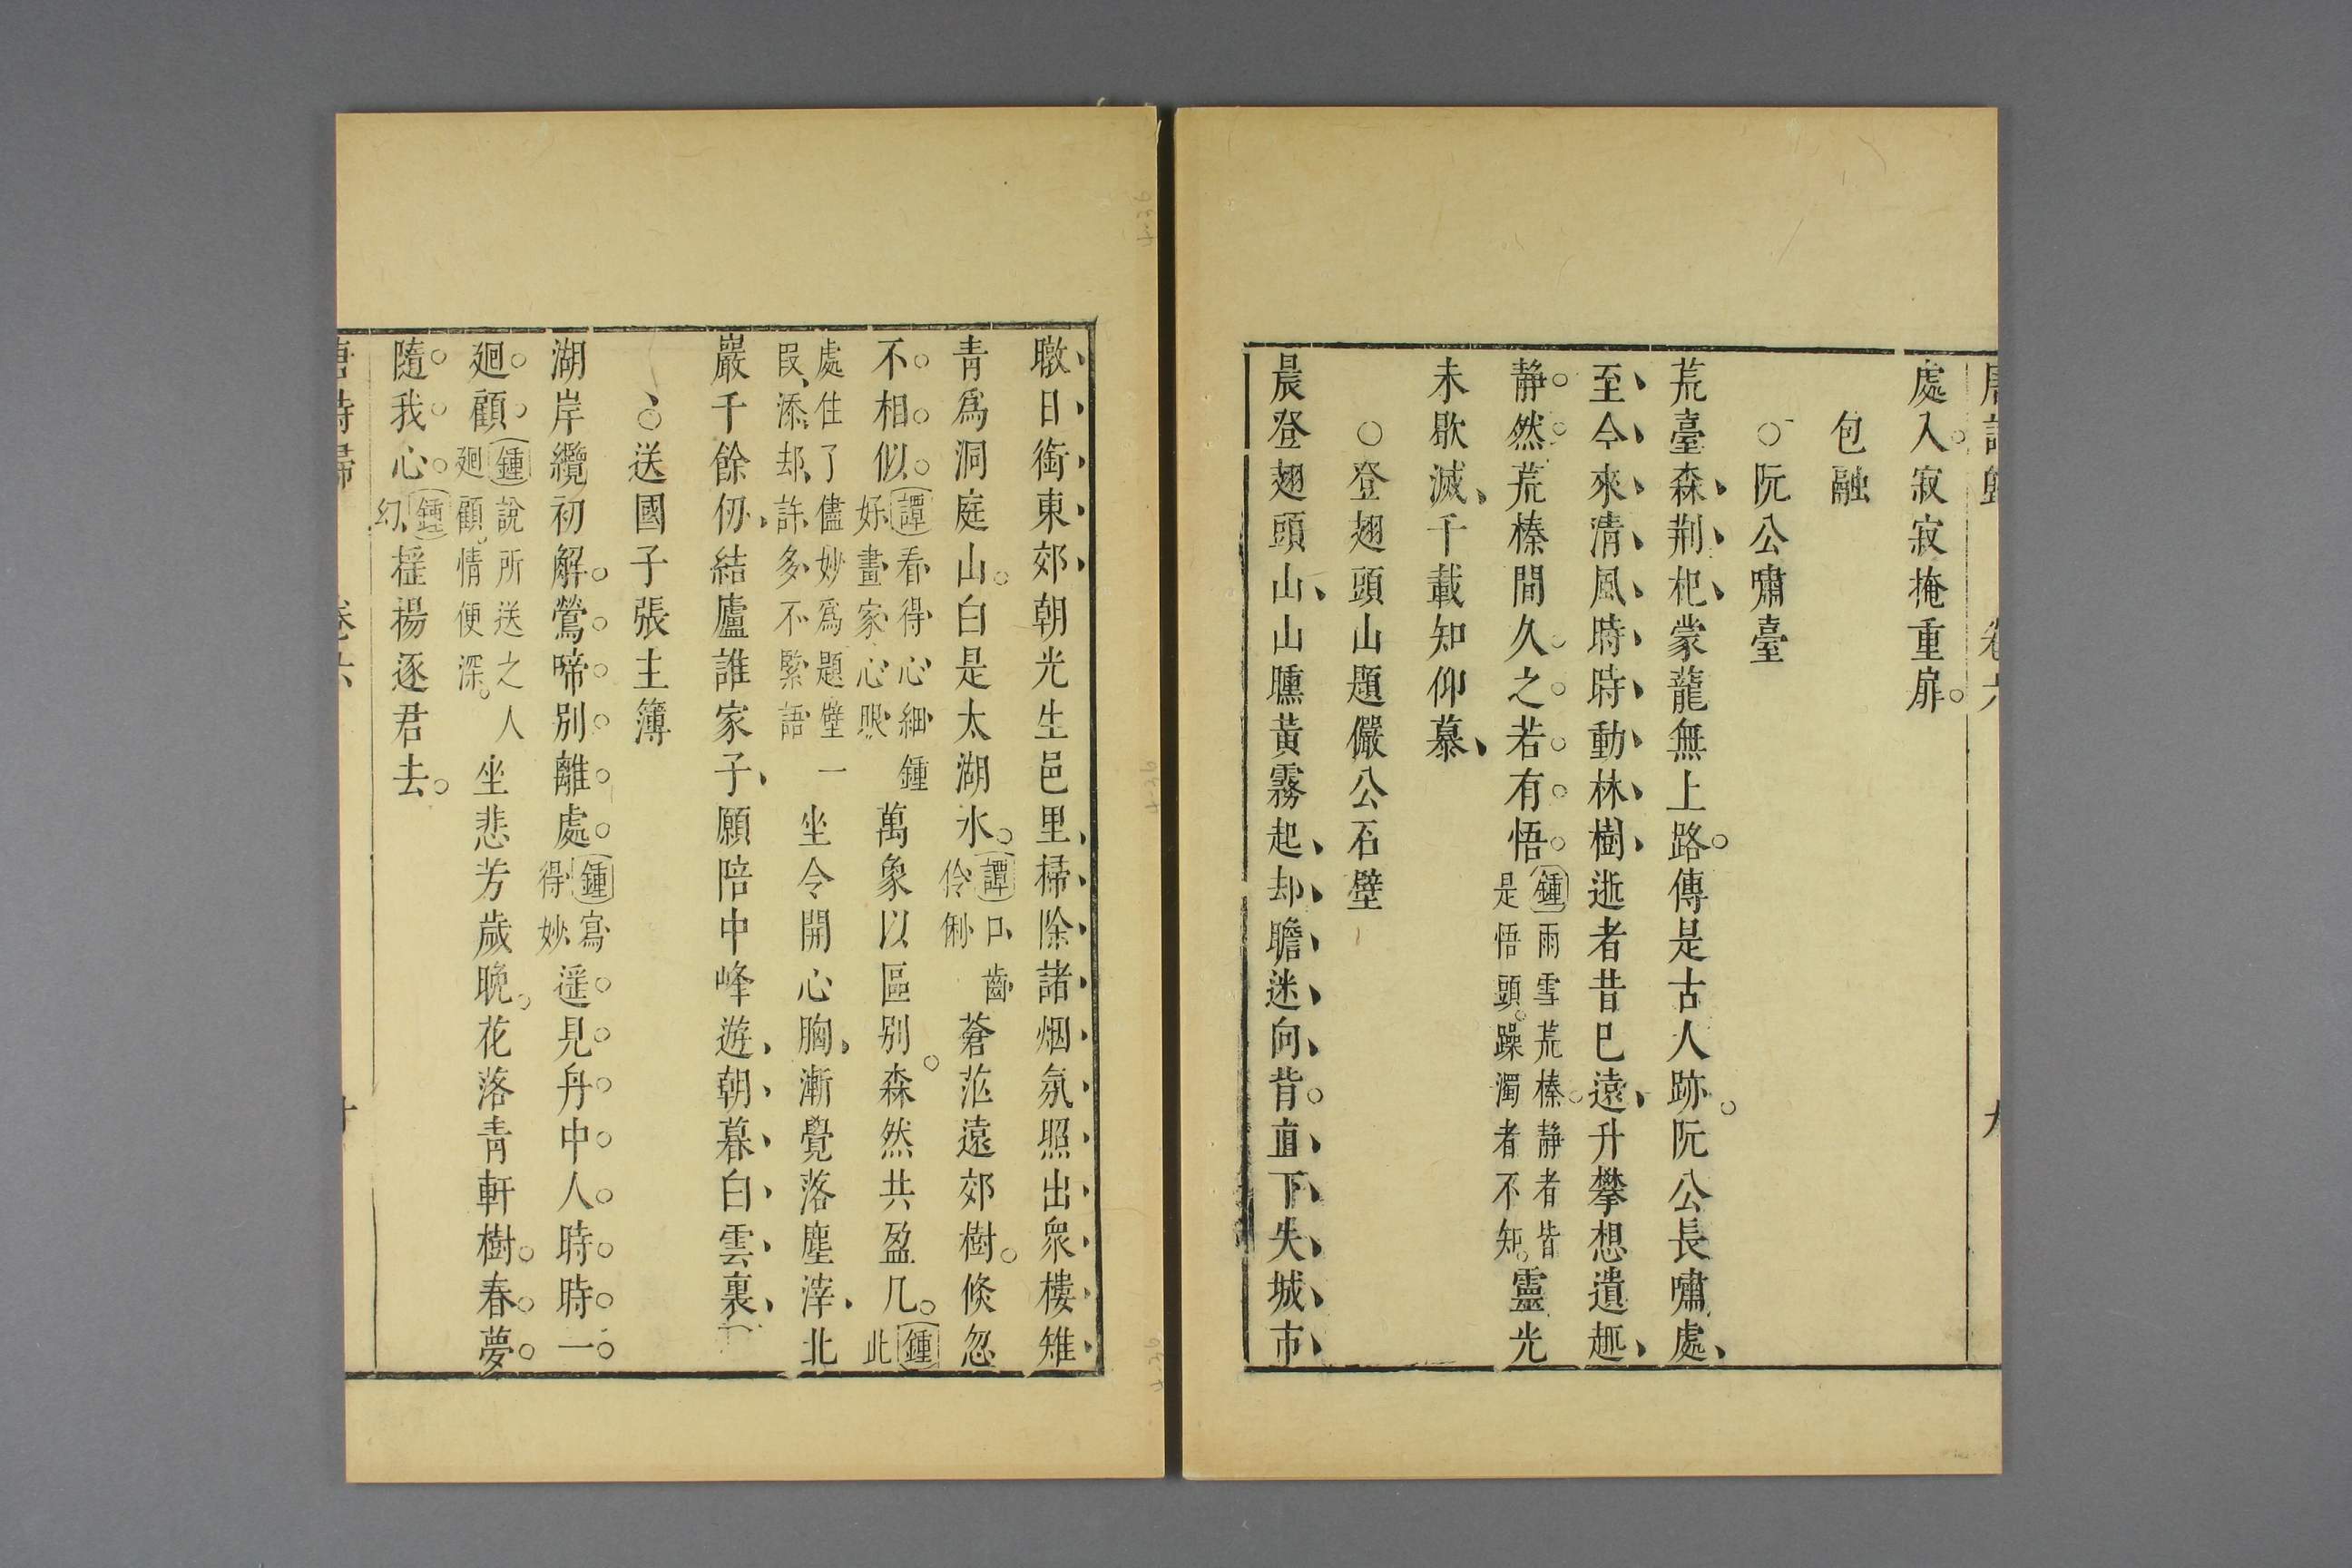 唐詩歸 卷六 九
處入寂寂掩重扉
包融
阮公嘯臺
荒臺森荆杞蒙蘢無上路傳是古人跡阮公長嘯處
至今來清風時時動林樹逝者昔已遠升攀想遺趣
静然荒榛間久之若有悟
鍾雨雪荒榛静者皆
是悟頭躁濁者不知
靈光
未歇滅千載知仰慕
登翅頭山題儼公石壁
晨登翅頭山山曛黃霧起却瞻迷向背直下失城市
暾日銜東郊朝光生邑里掃除諸烟氛照出衆樓雉
青爲洞庭山白是太湖水
譚口齒
伶俐
蒼茫遠郊樹倐忽
不相似
譚看得心細鍾
好畫家心眼
萬象以區别森然共盈几
鍾
此
處住了儘妙爲題壁一
叚添却許多不緊語
坐令開心胸漸覺落塵滓北
巖千餘仭結廬誰家子願陪中峰遊朝暮白雲裏
送國子張主簿
湖岸纜初解鶯啼别離處
鍾寫
得妙
遥見舟中人時時一
廻顧
鍾說所送之人
廻顧情便深
坐悲芳歲晚花落青軒樹春夢
隨我心
鍾
幻
揺揚逐君去
唐詩歸 卷六 十